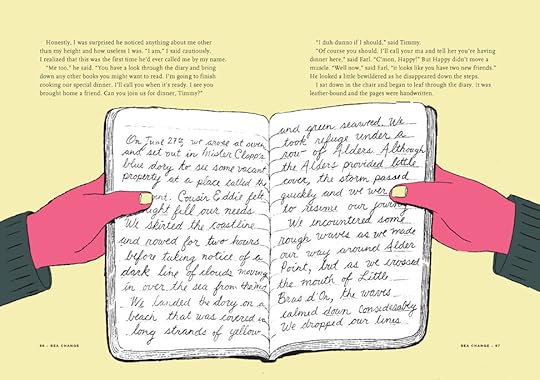 Honestly, I was surprised he noticed anything about me other
than my height and how useless I was. "I am," I said cautiously.
I realized that this was the first time he'd ever called me by my name.
"Me too," he said. "You have a look through the diary and bring
down any other books you might want to read. I'm going to finish
cooking our special dinner. I'll call you when it's ready. I see you
brought home a friend. Can you join us for dinner, Timmy?"
"I duh-dunno if I should," said Timmy.
"Of course you should. I'll call your ma and tell her you're having
dinner here," said Earl. "C'mon, Happy!" But Happy didn't move a
muscle. "Well now," said Earl, "it looks like you have two new friends."
He looked a little bewildered as he disappeared down the steps.
I sat down in the chair and began to leaf through the diary. It was
leather-bound and the pages were handwritten.
On June 27th, we arose at seven
and set out in Mister Clapp's
blue dory to see some vacant
property at a place called the
Cousin Eddie felt
fill our needs
We skirted the coastline
and rowed for two hours
before taking notice of a
dark line of clouds moving
in over the sea from the
We landed the dory on a
beach that was covered in
long strands of yellow
and green seaweed. We
took refuge under a
row of Alders. Although
the Alders provided little
cover, the storm passed
quickly and we were
to resume our journey
We encountered some
rough waves as we made
our way around Alder
Point, but as we crossed
the mouth of Little
Bras d'Or, the waves
calmed down considerably
We dropped our lines
86 – SEA CHANGE
SEA CHANGE – 87